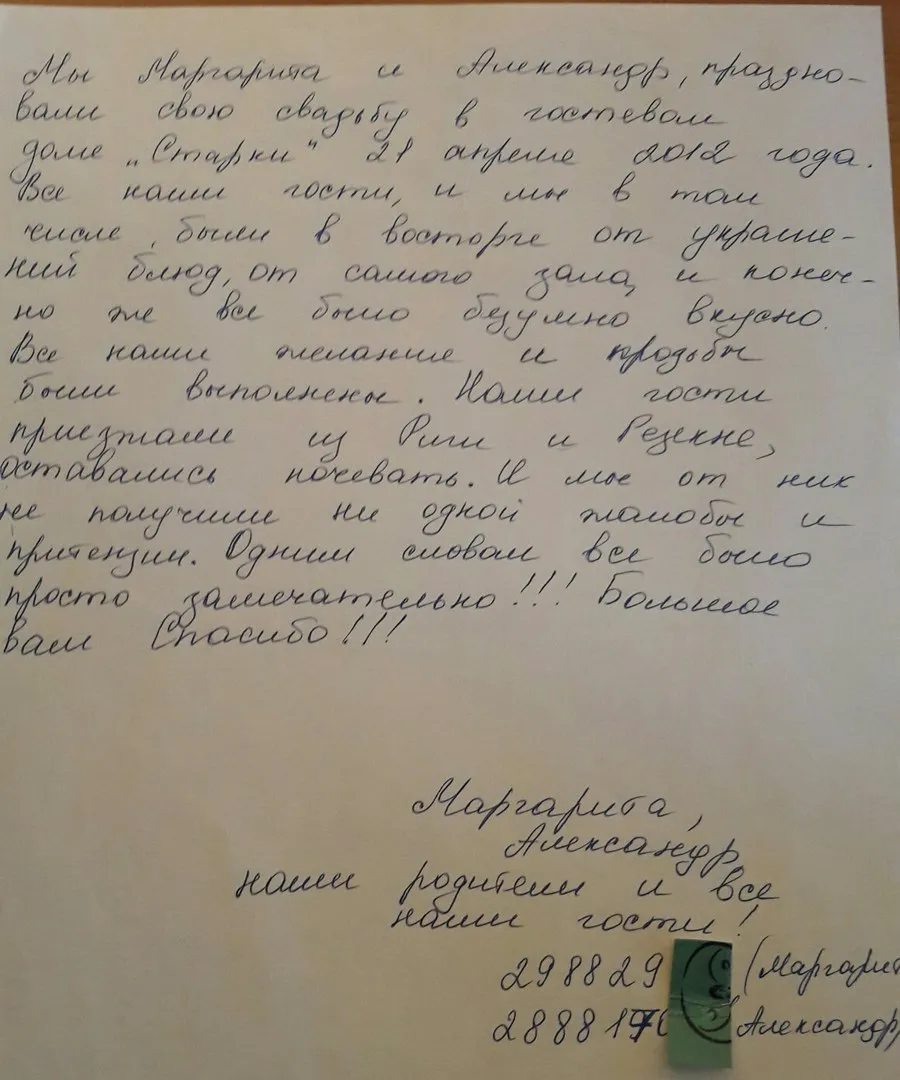 Мы Маргарита и Александр, праздно-
вали свою свадьбу в гостевом
доме „Старки" 21 апреле 2012 года.
Все наши гости, и мы в том
числе, были в восторге от украше-
ний блюд, от самого зала, и конеч-
но же все было безумно вкусно.
Все наши желание и прозьбы
были выполнены. Наши гости
приезжали из Риги и Резекне,
оставались ночевать. И мы от них
не получили ни одной жалобы и
притензии. Одним словам все было
просто замечательно!!! Большое
вам Спасибо!!!
Маргарита,
Александр,
наши родители и все
наши гости!
298829 (Маргарит
288819 Александр)